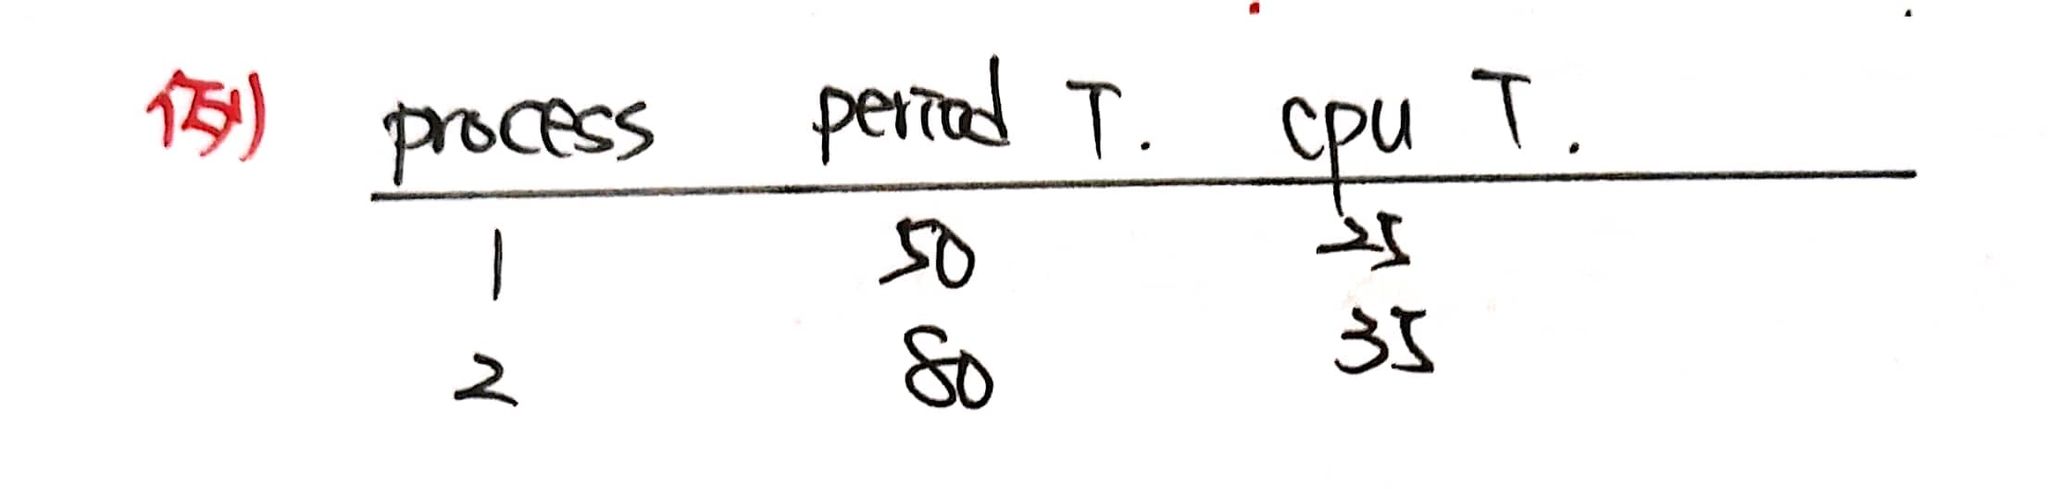 例) process period T. cpu T.
1 50 25
2 80 35